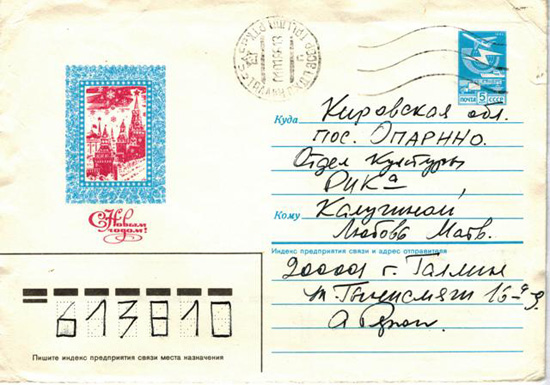 ПОЧТА 5 СССР
Куда Кировская обл.
пос. ОПАРИНО.
Отдел Культуры
РИКа
Кому Калугиной,
Любовь Матв.
Индекс предприятия связи и адрес отправителя
200001 г. Таллин
16
А
С Новым
годом!
613810
Пишите индекс предприятия связи места назначения